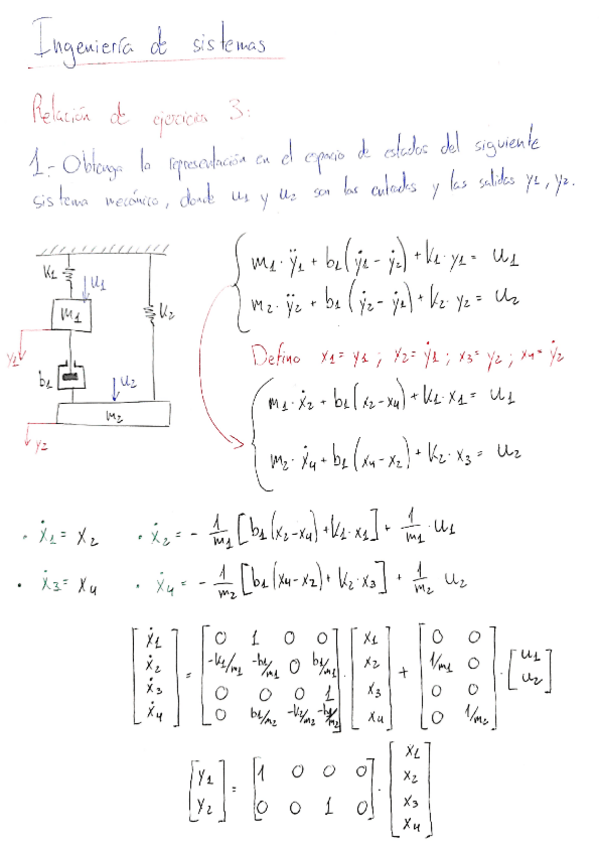 Ingeniería de sistemas
Relación de ejercicios 3:
1.- Obtenga la representación en el espacio de estados del siguiente
sistema mecánico, donde u1 y u2 son las entradas y las salidas y1, y2.
K1
u1
m1
K2
y1
b1
u2
m2
y2
m1·ÿ1 + b1(ẏ1 - ẏ2) + K1·y1 = u1
m2·ÿ2 + b1(ẏ2 - ẏ1) + K2·y2 = u2
Defino x1 = y1 ; x2 = ẏ1 ; x3 = y2 ; x4 = ẏ2
m1·ẋ2 + b1(x2 - x4) + K1·x1 = u1
m2·ẋ4 + b1(x4 - x2) + K2·x3 = u2
· ẋ1 = x2 · ẋ2 = - 1/m1 [b1(x2-x4) + K1·x1] + 1/m1 · u1
· ẋ3 = x4 · ẋ4 = - 1/m2 [b1(x4-x2) + K2·x3] + 1/m2 u2
[ẋ1] [0 1 0 0] [x1] [0 0]
[ẋ2] = [-K1/m1 -b1/m1 0 b1/m1] · [x2] + [1/m1 0] · [u1]
[ẋ3] [0 0 0 1] [x3] [0 0] [u2]
[ẋ4] [0 b1/m2 -K2/m2 -b1/m2] [x4] [0 1/m2]
[y1] = [1 0 0 0] · [x1]
[y2] [0 0 1 0] [x2]
[x3]
[x4]